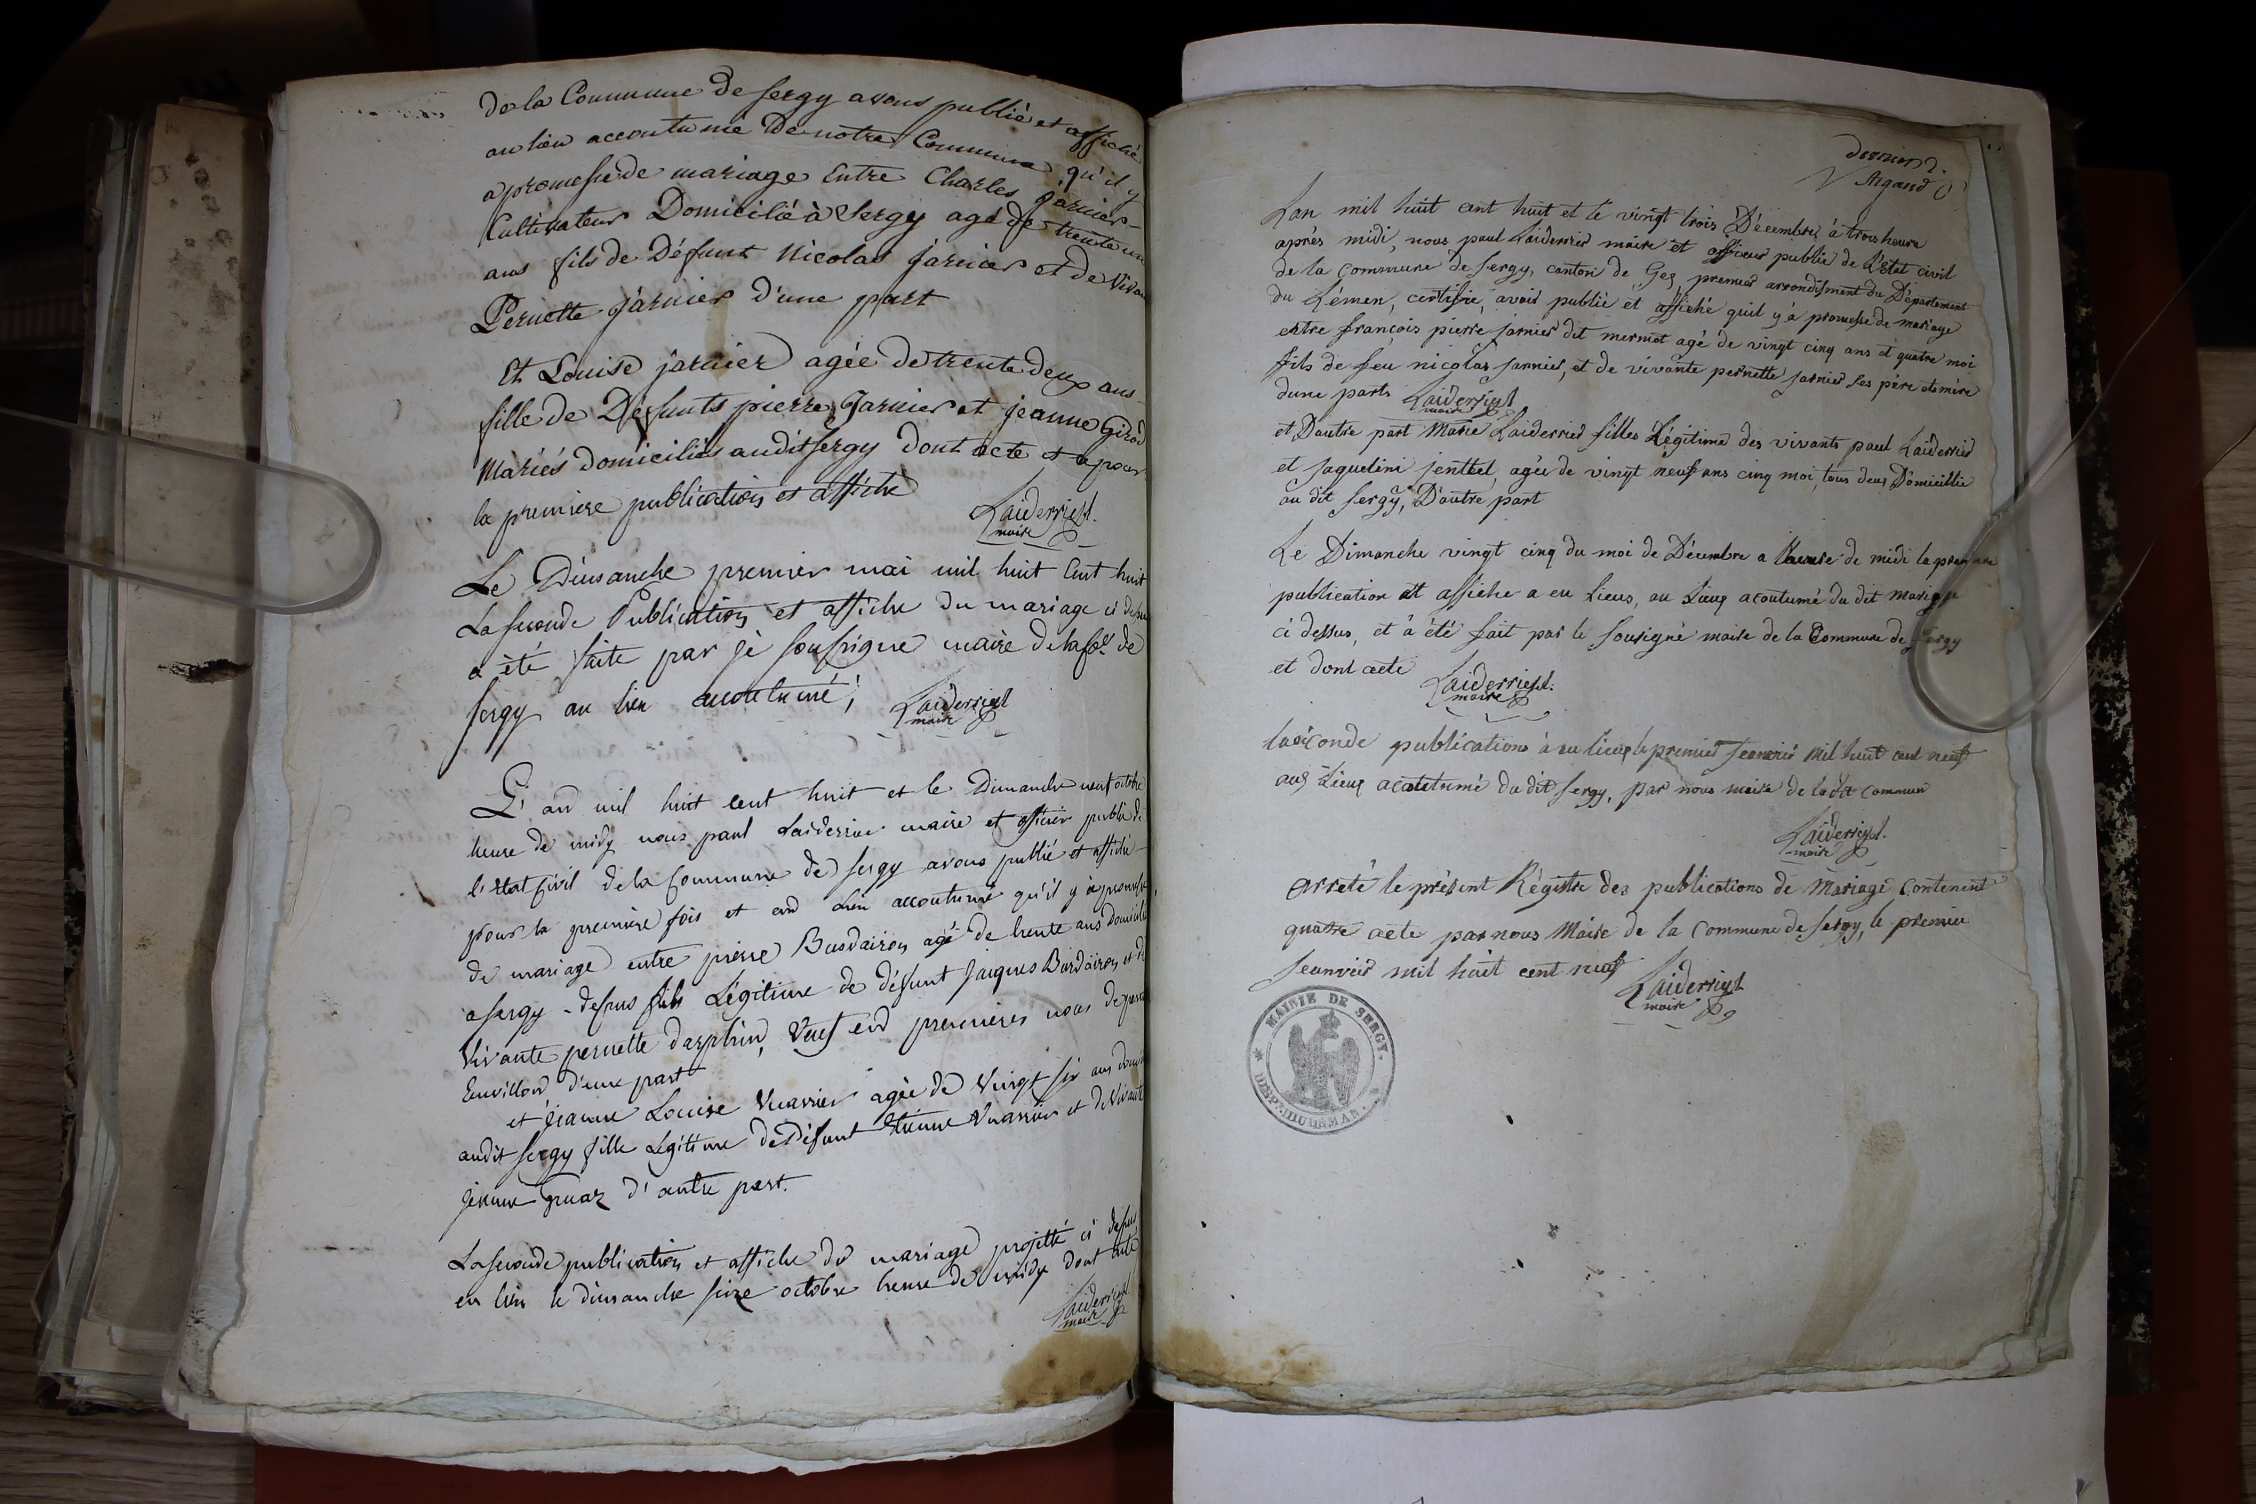 de la Commune de Sergy avons publié et affiché
au lieu accoutumé de notre Commune qu'il y
a promesse de mariage Entre Charles Jarnier
Cultivateur Domicilié à Sergy agé de trente un
ans fils de Défunt Nicolas Jarnier et de Vivante
Pernette Jarnier d'une part
Et Louise jarnier agée de trente deux ans
fille de Défunts pierre Jarnier et jeanne Girod
Mariés domiciliés audit Sergy dont acte et a pour
la premiere publication et affiche
Laiderrier
maire
Le Dimanche premier mai mil huit Cent huit
La seconde Publication et affiche du mariage ci dessus
a été faite par je soussigné maire de la Co.e de
Sergy au lieu acoutumé;
Laiderrier
maire
L'an mil huit cent huit et le Dimanche neuf octobre
heure de midy nous paul Laiderrier maire et officier public de
l'Etat Civil de la Commune de Sergy avons publié et affiché
pour la premiere fois et au Lieu accoutumé qu'il y a promesse
de mariage entre pierre Burdairon agé de trente ans Domicilié
a Sergy fils Légitime de défunt Jaques Burdairon et de
Vivante pernette dasphin, Veuf en premieres nous de
d'une part
et jeanne Louise Vuarrier agée de Vingt six ans
audit Sergy fille Légitime de Défunt Etienne Vuarrier et de Vivante
jeanne gruaz d'autre part.
La seconde publication et affiche du mariage projetté ci dessus
eu lieu le dimanche seize octobre heure de midy dont acte
Laiderrier
maire
dernier
Argand
Lan mil huit cent huit et le vingt trois Décembre à trois heure
après midi, nous paul Laiderrier maire et officier public de L'Etat civil
de la commune de Sergy, canton de Gex, premier arrondisment du Département
du Léman, certifie, avoir publié et affiché quil y à promesse de mariage
entre françois pierre jarnier dit mermet agé de vingt cinq ans et quatre moi
fils de feu nicolas jarnier, et de vivante pernette jarnier ses père et mère
dune part
Laiderrier
maire
et Dautre part Marie Laiderrier filles Légitime des vivants paul Laiderrier
et jaqueline jenthel, agée de vingt neuf ans cinq moi, tous deux Domicillié
au dit Sergy, D'autre part
Le Dimanche vingt cinq du moi de Décembre a Lheure de midi la premiere
publication et affiche a eu Lieus, au Lieux acoutumé du dit mariage
ci dessus, et à été fait par le sousigné maire de la Commune de Sergy
et dont acte
Laiderrier
maire
la séconde publications à eu lieux le premier Jeanvier mil huit cent neuf
aux Lieux acoutumé du dit Sergy, par nous maire de la dit commun
Laiderrier
maire
arrêté le présent Régistre des publications de Mariage, Contenent
quatre acte par nous Maire de la Commune de Sergy, le premier
Jeanvier mil huit cent neuf
Laiderrier
maire
MAIRIE DE SERGY.